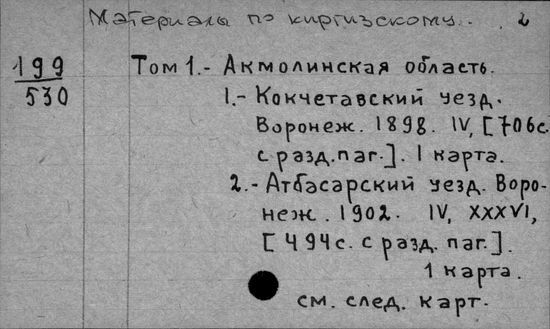 Материалы по киргизскому.. 2
199
530
Том 1.- Акмолинская область.
1.- Кокчетавский уезд.
Воронеж. 1898. IV, [706с.
с разд. паг.]. 1 карта.
2.- Атбасарский уезд. Воро-
неж. 1902. IV, XXXVI,
[494с. с разд. паг.].
1 карта.
см. след. карт.